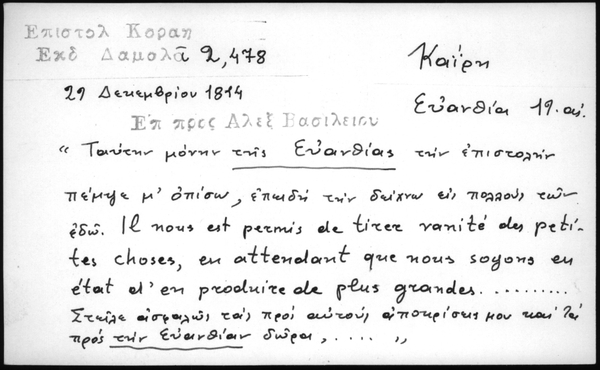 Επιστολ Κοραη
Εκδ Δαμαλᾶ 2,478
Καΐρη
29 Δεκεμβρίου 1814
Εὐανθία 19. αἰ.
Ἐπ προς Αλεξ Βασιλειου
“ Ταύτην μόνην τῆς Εὐανθίας τὴν ἐπιστολὴν
πέμψε μ' ὀπίσω, ἐπειδὴ τὴν δείχνω εἰς πολλοὺς τῶν
ἐδῶ. Il nous est permis de tirer vanité des peti-
tes choses, en attendant que nous soyons en
état d'en produire de plus grandes..........
Στεῖλε ἀσφαλῶς τὰς πρὸς αὐτοὺς ἀποκρίσεις μου καὶ τὰ
πρὸς τὴν Εὐανθίαν δῶρα, ..... ,,